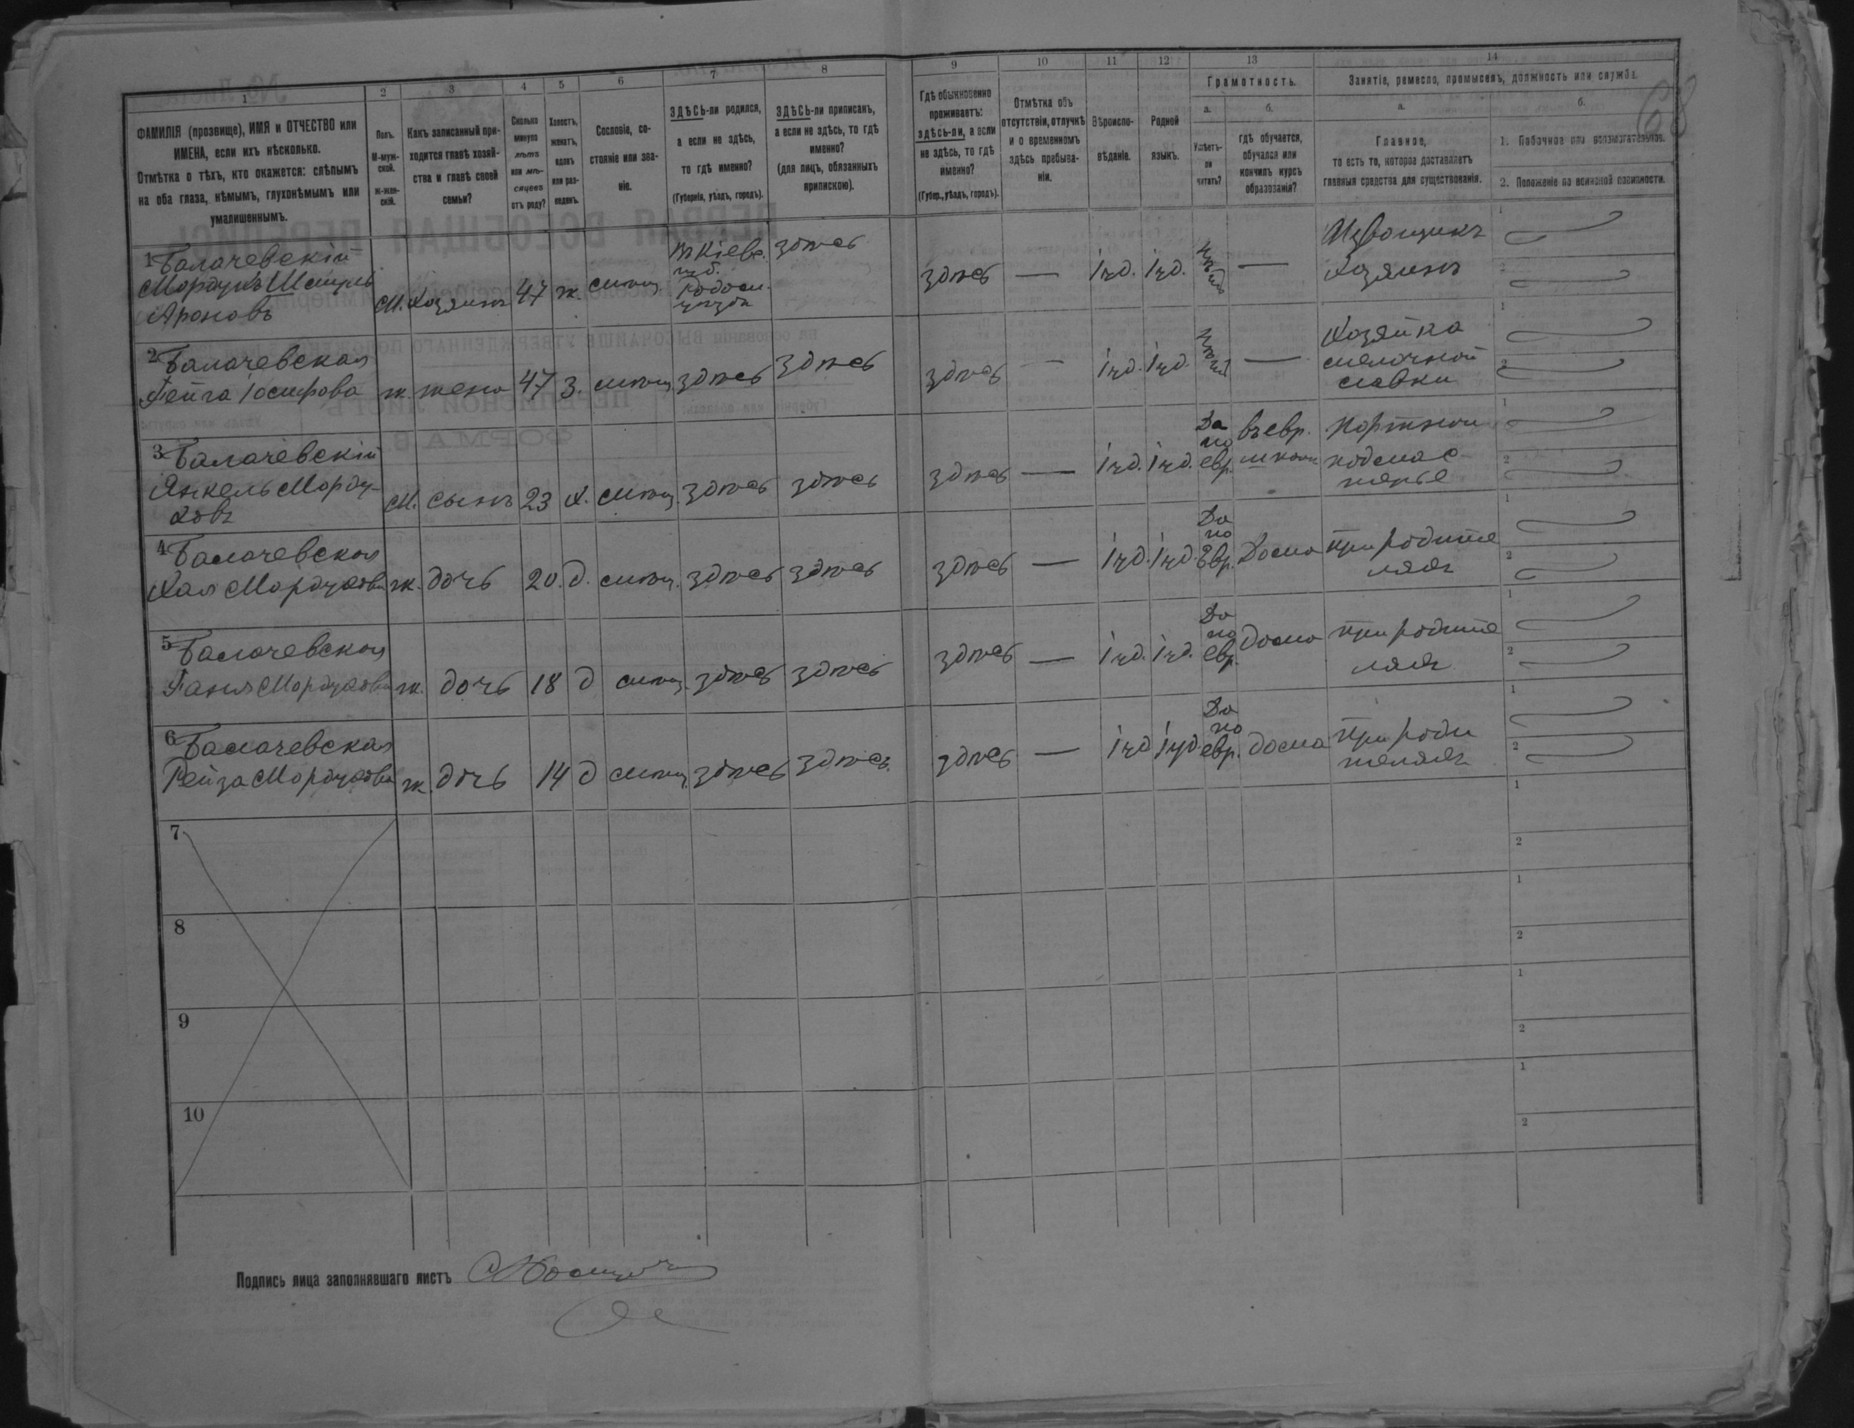 1
ФАМИЛІЯ (прозвище), ИМЯ и ОТЧЕСТВО или
ИМЕНА, если ихъ нѣсколько.
Отмѣтка о тѣхъ, кто окажется: слѣпымъ
на оба глаза, нѣмымъ, глухонѣмымъ или
умалишеннымъ.
2
Полъ.
М-муж-
ской.
Ж-жен-
скій.
3
Какъ записанный при-
ходится главѣ хозяй-
ства и главѣ своей
семьи?
4
Сколько
минуло
лѣтъ
или мѣ-
сяцевъ
отъ роду?
5
Холостъ,
женатъ,
вдовъ
или раз-
веденъ.
6
Сословіе, со-
стояніе или зва-
ніе.
7
ЗДѢСЬ-ли родился,
а если не здѣсь,
то гдѣ именно?
(Губернія, уѣздъ, городъ).
8
ЗДѢСЬ-ли приписанъ,
а если не здѣсь, то гдѣ
именно?
(для лицъ, обязанныхъ
припискою).
9
Гдѣ обыкновенно
проживаетъ:
ЗДѢСЬ-ЛИ, а если
не здѣсь, то гдѣ
именно?
(Губер., уѣздъ, городъ).
10
Отмѣтка объ
отсутствіи, отлучкѣ
и о временномъ
здѣсь пребыва-
ніи.
11
Вѣроиспо-
вѣданіе.
12
Родной
языкъ.
13
Грамотность.
а.
Умѣетъ-
ли
читать?
б.
гдѣ обучается,
обучался или
кончилъ курсъ
образованія?
14
Занятіе, ремесло, промыселъ, должность или служба.
а.
Главное,
то есть то, которое доставляетъ
главныя средства для существованія.
б.
1. Побочное или вспомогательное.
2. Положеніе по воинской повинности.
68
1 Балачевскій
Мордухъ Шмуль
Ароновъ
М. Хозяинъ 47 ж. мѣщ.
въ Кіевс.
губ.
уѣзда
здѣсь
здѣсь — іуд. іуд. —
Извощикъ
Хозяинъ
2 Балачевская
Іосифова
ж жена 47 З. мѣщ. здѣсь здѣсь
здѣсь — іуд. іуд. —
Хозяйка
мелочной
лавки
3 Балачевскій
ЯнкельМорду-
ховъ
М. сынъ 23 х. мѣщ. здѣсь здѣсь
здѣсь — іуд. іуд.
Да
по
евр.
въ евр.
школѣ
Портной
подмас
терье
4 Балачевская
Хая Мордухова
ж. дочь 20. д. мѣщ. здѣсь здѣсь
здѣсь — іуд. іуд.
Да
по
Евр.
Дома
При родите
ляхъ
5 Балачевская
Ганя Мордухова
ж. дочь 18 д мѣщ. здѣсь здѣсь
здѣсь — іуд. іуд.
Да
по
евр.
дома
При родите
ляхъ
6 Балачевская
Рейза Мордухова
ж. дочь 14 д мѣщ. здѣсь здѣсь.
здѣсь — іуд іуд.
Да
по
евр.
дома
При роди
теляхъ
7
8
9
10
Подпись лица заполнявшаго листъ